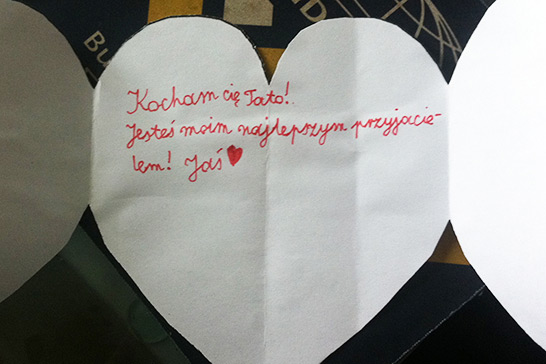 Bu
ND
Kocham cię Tato!
Jesteś moim najlepszym przyjacie-
lem! Jaś